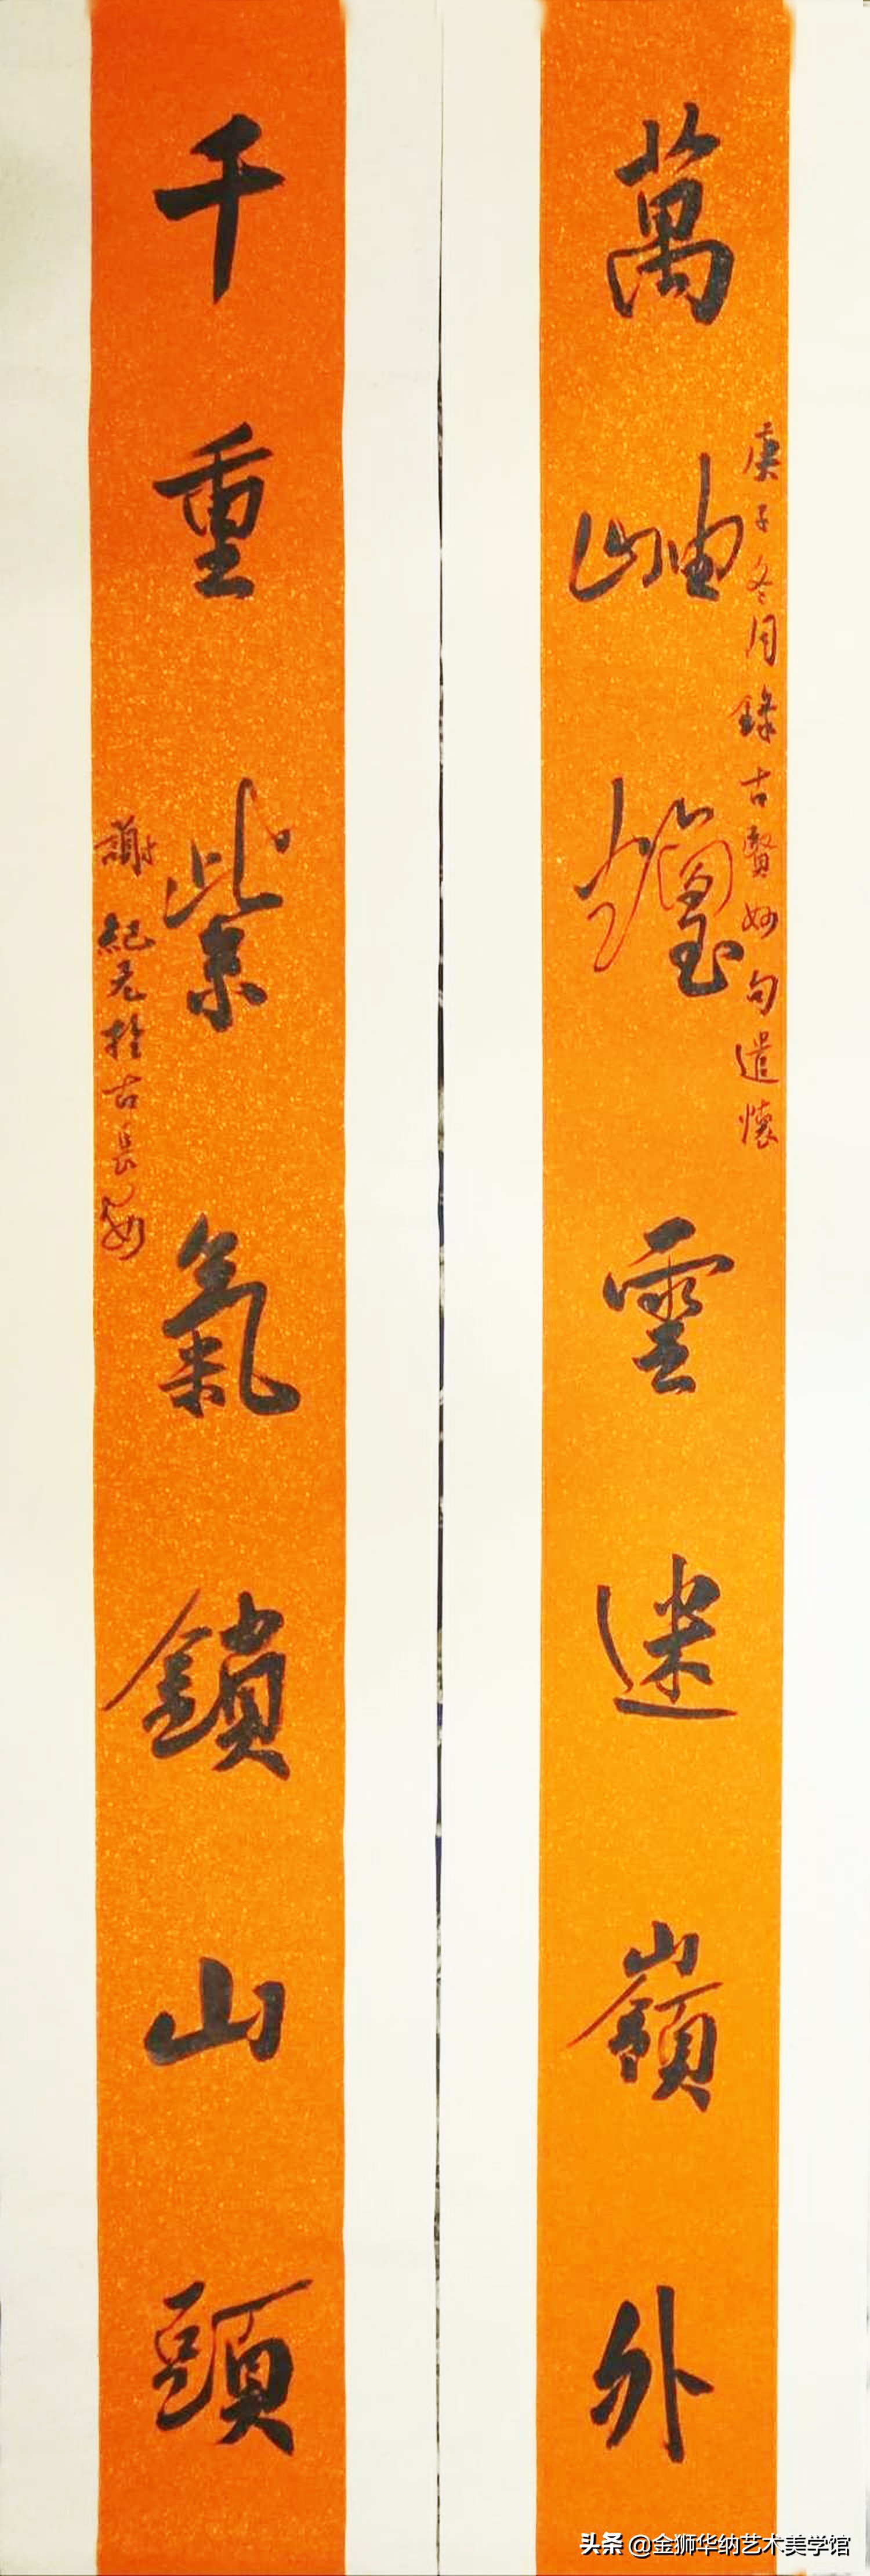 萬岫雲迷嶺外
庚子冬月錄古賢妙句遣懷
千重紫氣鎖山頭
謝紀元於古長安
头条 @金狮华纳艺术美学馆